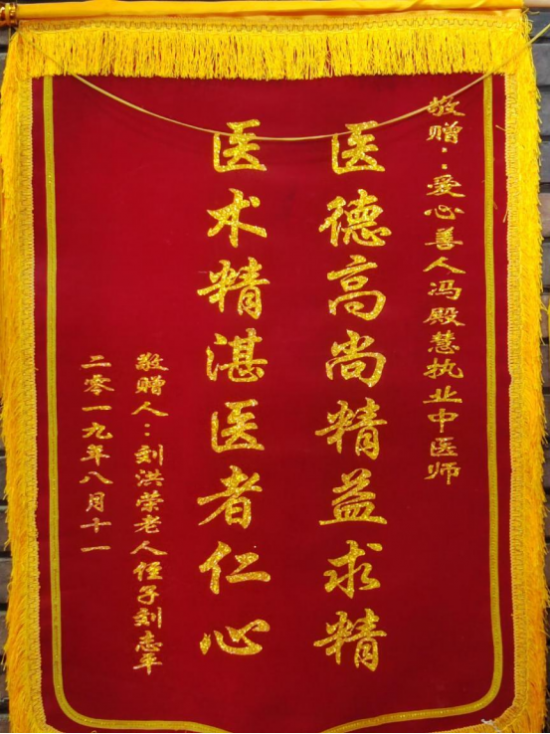 敬赠：爱心善人冯殿慧执业中医师
医德高尚精益求精
医术精湛医者仁心
敬赠人：刘洪荣老人侄子刘志平
二零一九年八月十一